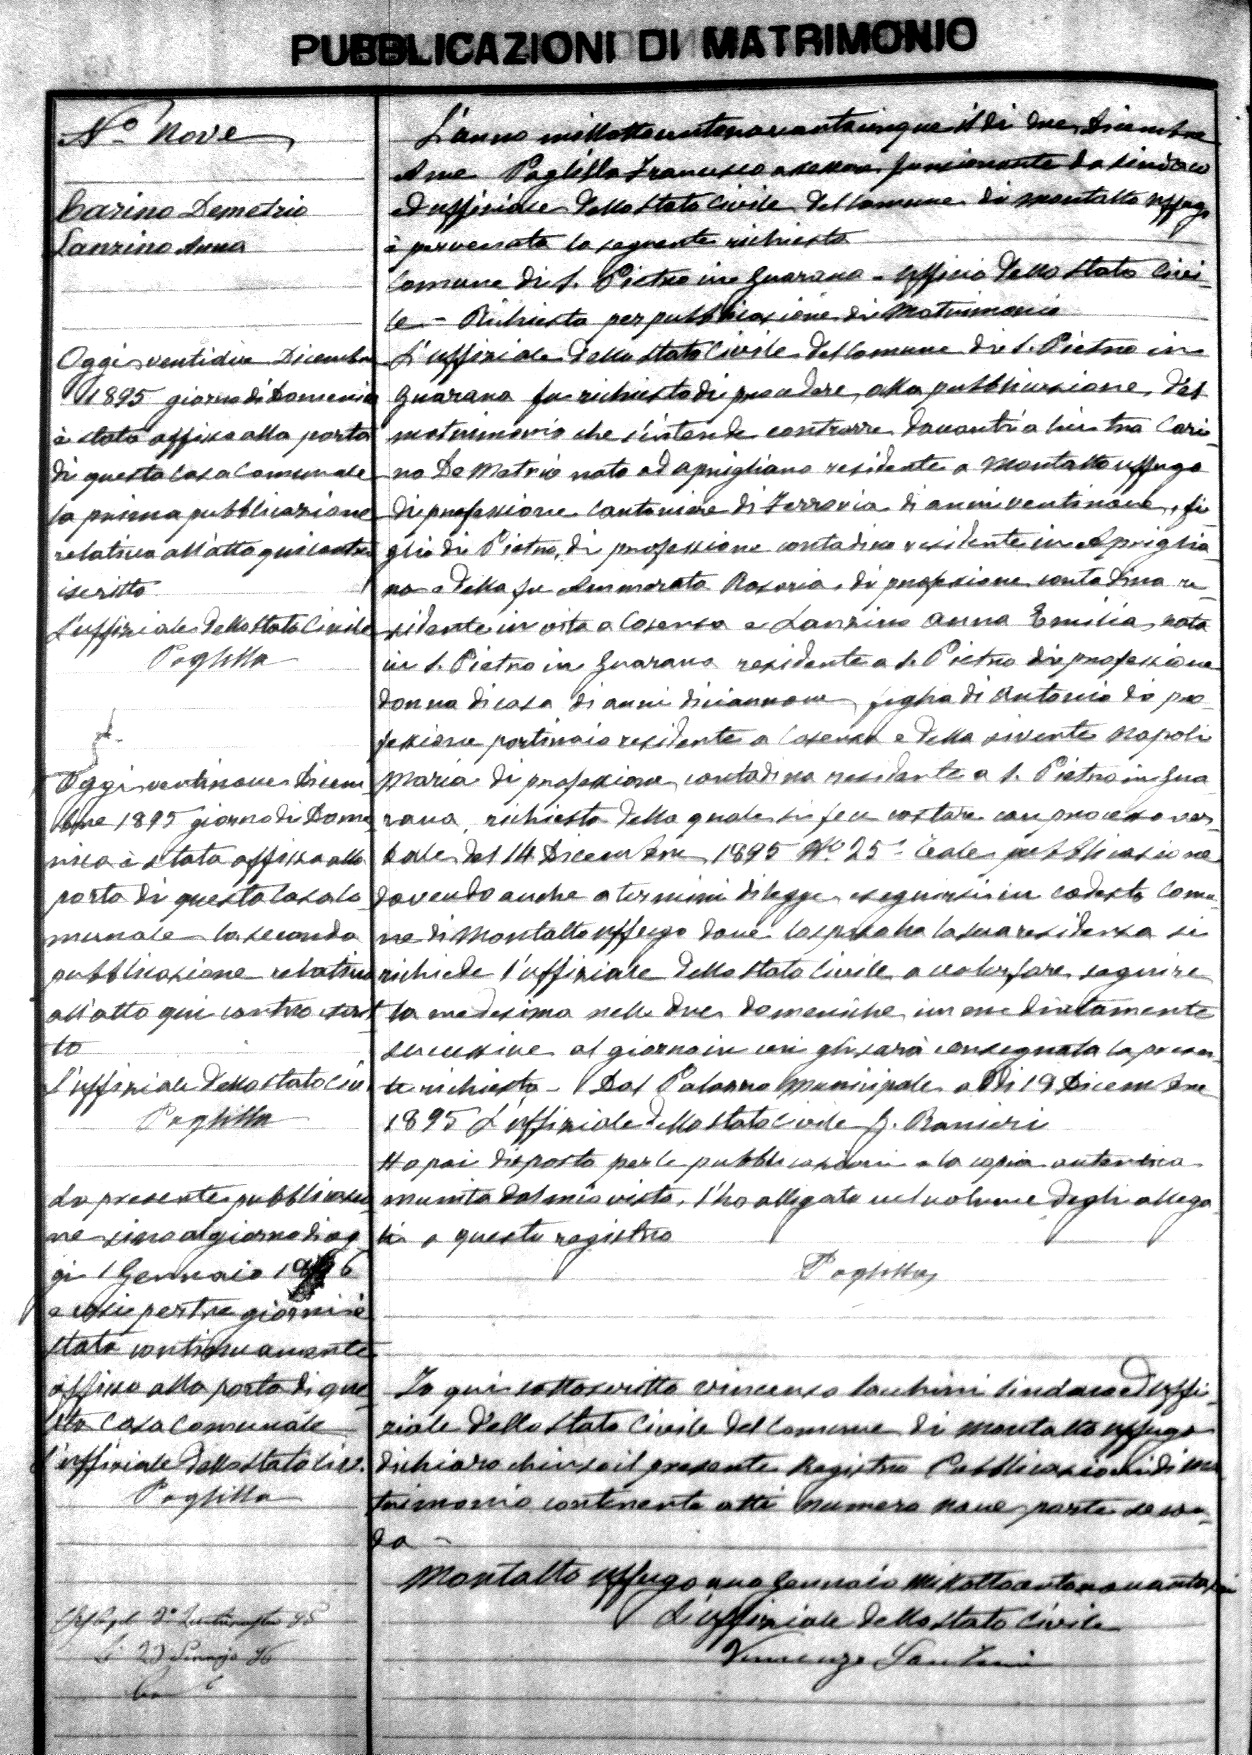 PUBBLICAZIONI DI MATRIMONIO
No. Nove
Carino Demetrio
Lanzino Anna
Oggi ventidue Dicembre
1895 giorno di Domenica
è stata affissa alla porta
di questa Casa Comunale
la prima pubblicazione
relativa all'atto qui contro
iscritto
L'uffiziale dello stato Civile
Paglilla
Oggi ventinove Dicem
bre 1895 giorno di Dome
nica è stata affissa alla
porta di questa Casa Co
munale la seconda
pubblicazione relativa
all'atto qui contro
to
L'uffiziale dello stato Civ.
Paglilla
La presente pubblicazio
ne sino al giorno di og
gi 1 Gennaio 1896
e così per tre giorni è
stata continuamente
affissa alla porta di que
sta Casa Comunale
L'uffiziale dello stato Civ.
Paglilla
L'anno millottocentonovantacinque il dì Dicembre
A me Paglilla Francesco assessore funzionante da sindaco
ed uffiziale dello stato Civile del Comune di Montalto Uffugo
è pervenuta la seguente richiesta
Comune di S. Pietro in Guarano - Ufficio dello stato Civi-
le - Richiesta per pubblicazione di Matrimonio
L'uffiziale dello stato Civile del Comune di S. Pietro in
Guarano fu richiesto di procedere alla pubblicazione del
matrimonio che s'intende contrarre davanti a lui tra Cari
no Demetrio nato ad Aprigliano residente a Montalto Uffugo
di professione Cantoniere di Ferrovia di anni ventinove, fi
glio di Pietro, di professione contadino residente in Apriglia
no e della fu Ammerata Rosaria di professione contadina re
sidente in vita a Cosenza e Lanzino Anna Emilia nata
in S. Pietro in Guarano residente a S. Pietro di professione
donna di casa di anni diciannove figlia di Antonio di pro
fessione portinaio residente a Cosenza e della vivente Napoli
Maria di professione contadina residente a S. Pietro in Gua
rano, richiesta della quale si fece constare con processo ver
bale del 14 Dicembre 1895 No 25. Tale pubblicazione
dovendo anche a termini di legge eseguirsi in codesto Comu-
ne di Montalto Uffugo dove lo sposo ha la sua residenza si
richiede l'uffiziale dello stato Civile a voler fare seguire
la medesima nelle due domeniche immediatamente
successive al giorno in cui gli sarà consegnata la presen
te richiesta - Dal Palazzo Municipale a dì 19 Dicembre
1895 L'uffiziale dello stato Civile G. Ranieri
Ho poi disposto per le pubblicazioni e la copia autentica
munita dal mio visto, l'ho allegata nel volume degli allega
ti a questo registro
Paglilla
Io qui sottoscritto Vincenzo Sindaco ed uffi-
ziale dello stato Civile del Comune di Montalto Uffugo
dichiaro chiuso il presente Registro Pubblicazioni di ma
trimonio contenente atti numero nove parte secon-
da -
Montalto Uffugo uno Gennaio millottocentonovantasei
L'uffiziale dello stato Civile
Vincenzo